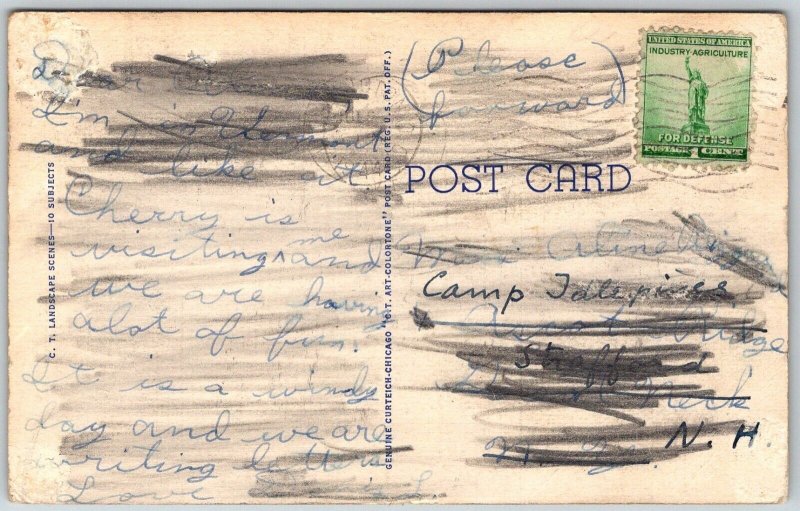 Dear
I'm in Vermont
and like it.
Cherry is
visiting me and
we are having
alot of fun.
It is a windy
day and we are
writing letters
Love
C. T. LANDSCAPE SCENES—10 SUBJECTS
GENUINE CURTEICH-CHICAGO "C. T. ART-COLORTONE" POST CARD (REG. U. S. PAT. OFF.)
(Please
forward)
UNITED STATES OF AMERICA
INDUSTRY·AGRICULTURE
FOR DEFENSE
POSTAGE 1 CENT
POST CARD
Miss
Camp Idlepines
Ridge
Strafford
Neck
N. Y.
N. H.